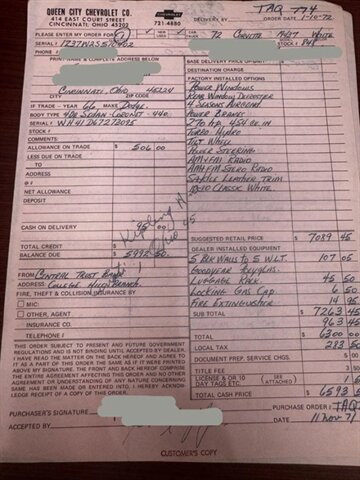 QUEEN CITY CHEVROLET CO.
414 EAST COURT STREET
CINCINNATI, OHIO 45202
721-4880
TAQ 774
DELIVERY BY
ORDER DATE 1-10-72
PLEASE ENTER MY ORDER FOR
NEW
USED
CAR
72 Corvette 19437 White
SERIAL#
STOCK #
PHONE #
PRINT NAME & COMPLETE ADDRESS BELOW
Cincinnati, Ohio 45224
IF TRADE - YEAR 66 MAKE Dodge
BODY TYPE 4DR Sedan - Coronet - 440
SERIAL # WH41D67272035
STOCK #
COMMENTS:
ALLOWANCE ON TRADE $ 506 00
LESS DUE ON TRADE
TO
ADDRESS
@ #
NET ALLOWANCE
DEPOSIT
CASH ON DELIVERY 95 00
TOTAL CREDIT $
BALANCE DUE $ 5992 50
FROM Central Trust Bank
ADDRESS College Hill Branch
FIRE, THEFT & COLLISION INSURANCE BY
MIC:
OTHER, AGENT
INSURANCE CO.
TELEPHONE
THIS ORDER SUBJECT TO PRESENT AND FUTURE GOVERNMENT REGULATIONS AND IS NOT BINDING UNTIL ACCEPTED BY DEALER. I HAVE READ THE MATTER ON THE BACK HEREOF AND AGREE TO IT AS A PART OF THIS ORDER THE SAME AS IF IT WERE PRINTED ABOVE MY SIGNATURE. THE FRONT AND BACK HEREOF COMPRISE THE ENTIRE AGREEMENT AFFECTING THIS ORDER AND NO OTHER AGREEMENT OR UNDERSTANDING OF ANY NATURE CONCERNING SAME HAS BEEN MADE OR ENTERED INTO, I HEREBY ACKNOWLEDGE RECEIPT OF A COPY OF THIS ORDER.
PURCHASER'S SIGNATURE
BASE DELIVERED PRICE
DESTINATION CHARGE
FACTORY INSTALLED OPTIONS
Power Windows
Rear Window Defroster
4 Seasons Aircond
Power Brakes
270 hp. 454 cu. in
Turbo Hydro
Tilt Wheel
Power Steering
AM+FM Radio
AM+FM Stero Radio
Saddle Leather Trim
Classic White
SUGGESTED RETAIL PRICE $ 7039 45
DEALER INSTALLED EQUIPMENT
107 05
Goodyear Polyglas.
Luggage Rack. 45 50
Locking Gas Cap. 6 50
Fire Extinguisher 14 95
SUB TOTAL $ 7263 45
963 45
TOTAL 6300 00
LOCAL TAX 283 50
DOCUMENT PREP. SERVICE CHGS.
TITLE FEE
LICENSE 6 OR 10 DAY TAG ETC. (SEE ATTACHED)
TOTAL CASH PRICE $ 6593 50
PURCHASE ORDER: TAQ
DATE 11 Nov 71
CUSTOMER'S COPY